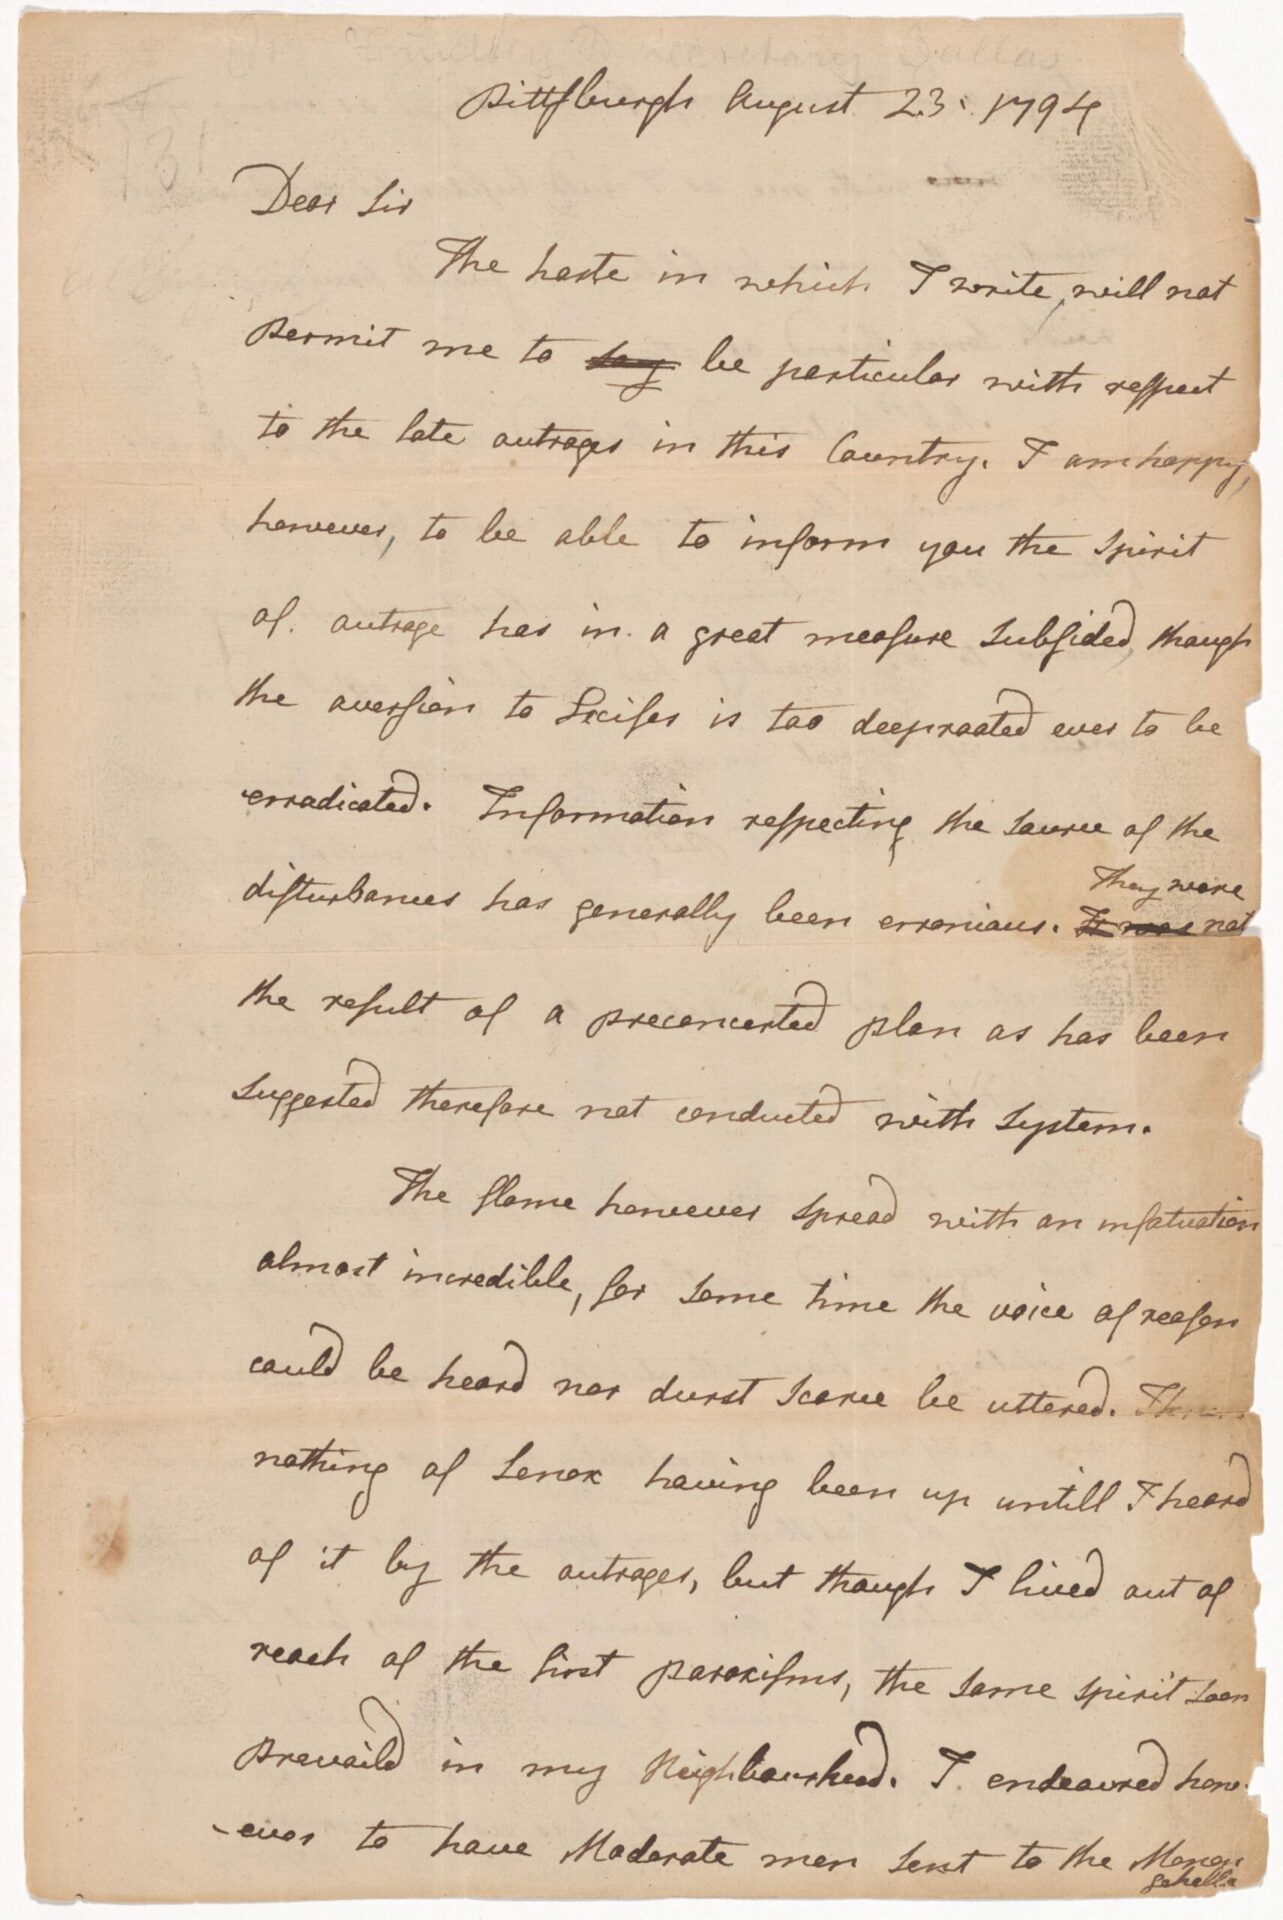 Pittsburgh August 23. 1794
Dear Sir
The haste in which I write, will not
permit me to say be particular with respect
to the late outrages in this Country. I am happy,
however, to be able to inform you the spirit
of outrage has in a great measure subsided, though
the aversion to Excises is too deeprooted ever to be
erradicated. Information respecting the source of the
disturbances has generally been erronious. It was not
They were
the result of a preconcerted plan as has been
suggested therefore not conducted with system.
The flame however spread with an infatuation
almost incredible, for some time the voice of reason
could be heard nor durst scarce be uttered. I
nothing of Lenox having been up untill I heard
of it by the outrages, but though I lived out of
reach of the first paroxisms, the same spirit soon
prevaild in my Neighbourhood. I endeavred how-
-ever to have Moderate men sent to the Monon
gehella